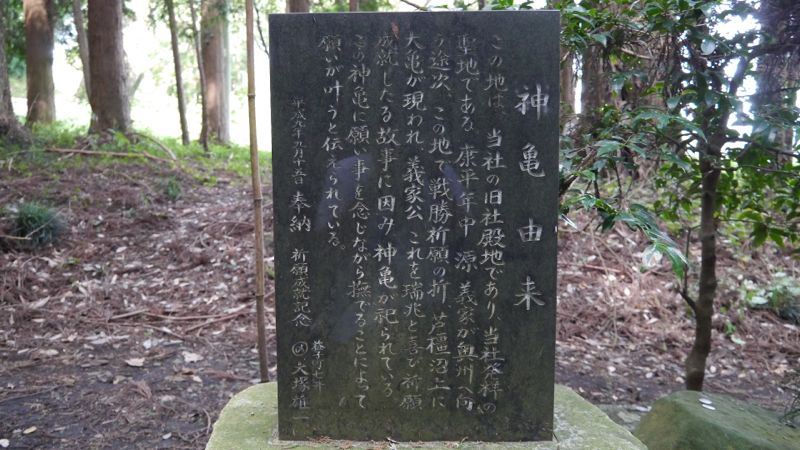 神亀由来
この地は、当社の旧社殿地であり、当社発祥の
聖地である。康平年中 源義家が奥州へ向
う途次、この地で戦勝祈願の折、芦橿沼上に
大亀が現われ、義家公、これを瑞兆と喜び祈願
成就したる故事に因み神亀が祀られている
この神亀に願い事を念じながら撫でることによって
願いが叶うと伝えられている。
平成 年九月十五日 奉納 祈願成就記念 大塚雄